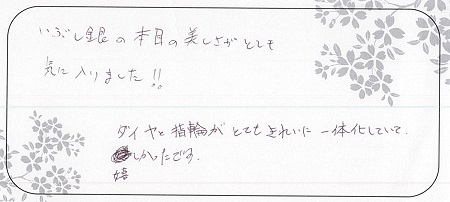 いぶし銀の木目の美しさがとても
気に入りました!!
ダイヤと指輪がとてもきれいに一体化していて、
嬉しかったです。